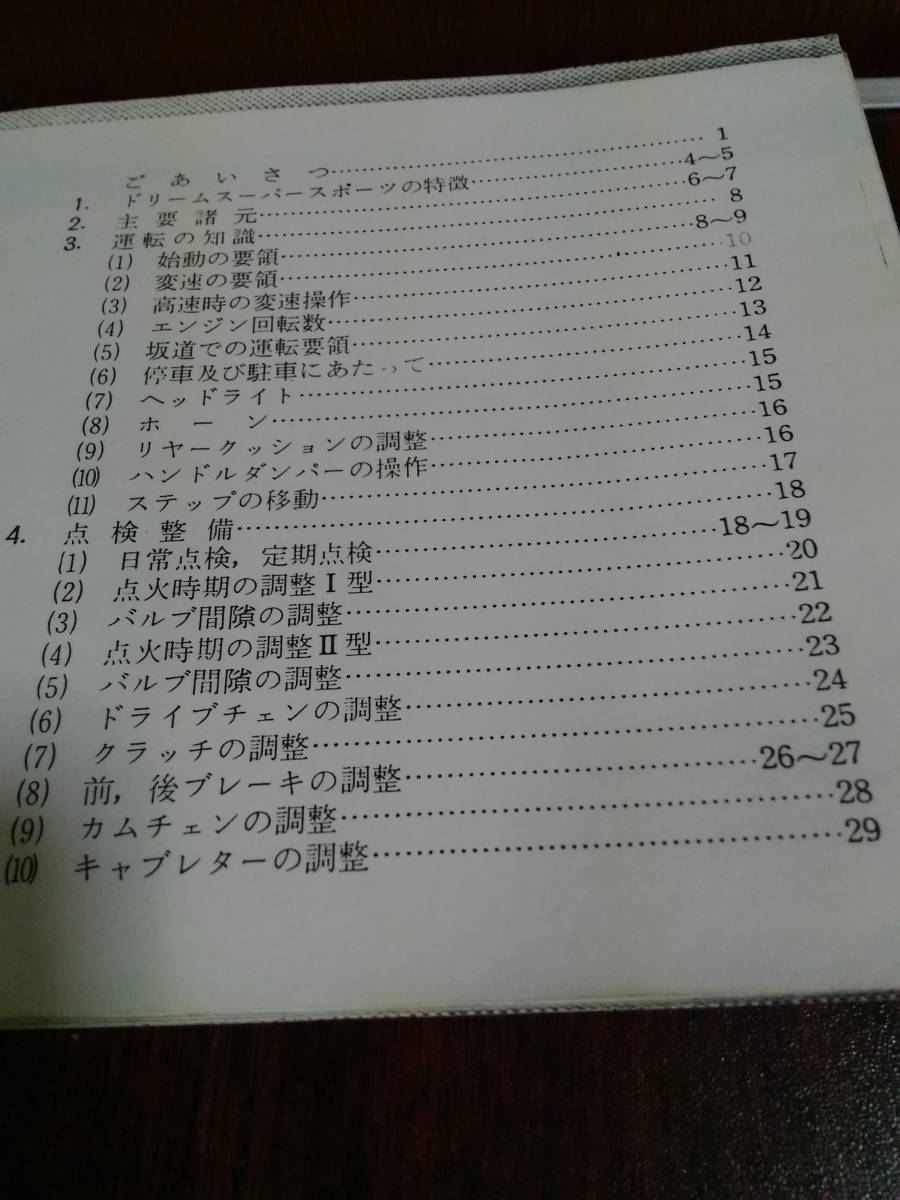 ごあいさつ…………1
1. ドリームスーパースポーツの特徴…………4〜5
2. 主要諸元…………6〜7
3. 運転の知識…………8
(1) 始動の要領…………8〜9
(2) 変速の要領…………10
(3) 高速時の変速操作…………11
(4) エンジン回転数…………12
(5) 坂道での運転要領…………13
(6) 停車及び駐車にあたって…………14
(7) ヘッドライト…………15
(8) ホーン…………15
(9) リヤークッションの調整…………16
(10) ハンドルダンパーの操作…………16
(11) ステップの移動…………17
4. 点検整備…………18
(1) 日常点検，定期点検…………18〜19
(2) 点火時期の調整Ⅰ型…………20
(3) バルブ間隙の調整…………21
(4) 点火時期の調整Ⅱ型…………22
(5) バルブ間隙の調整…………23
(6) ドライブチェンの調整…………24
(7) クラッチの調整…………25
(8) 前，後ブレーキの調整…………26〜27
(9) カムチェンの調整…………28
(10) キャブレターの調整…………29